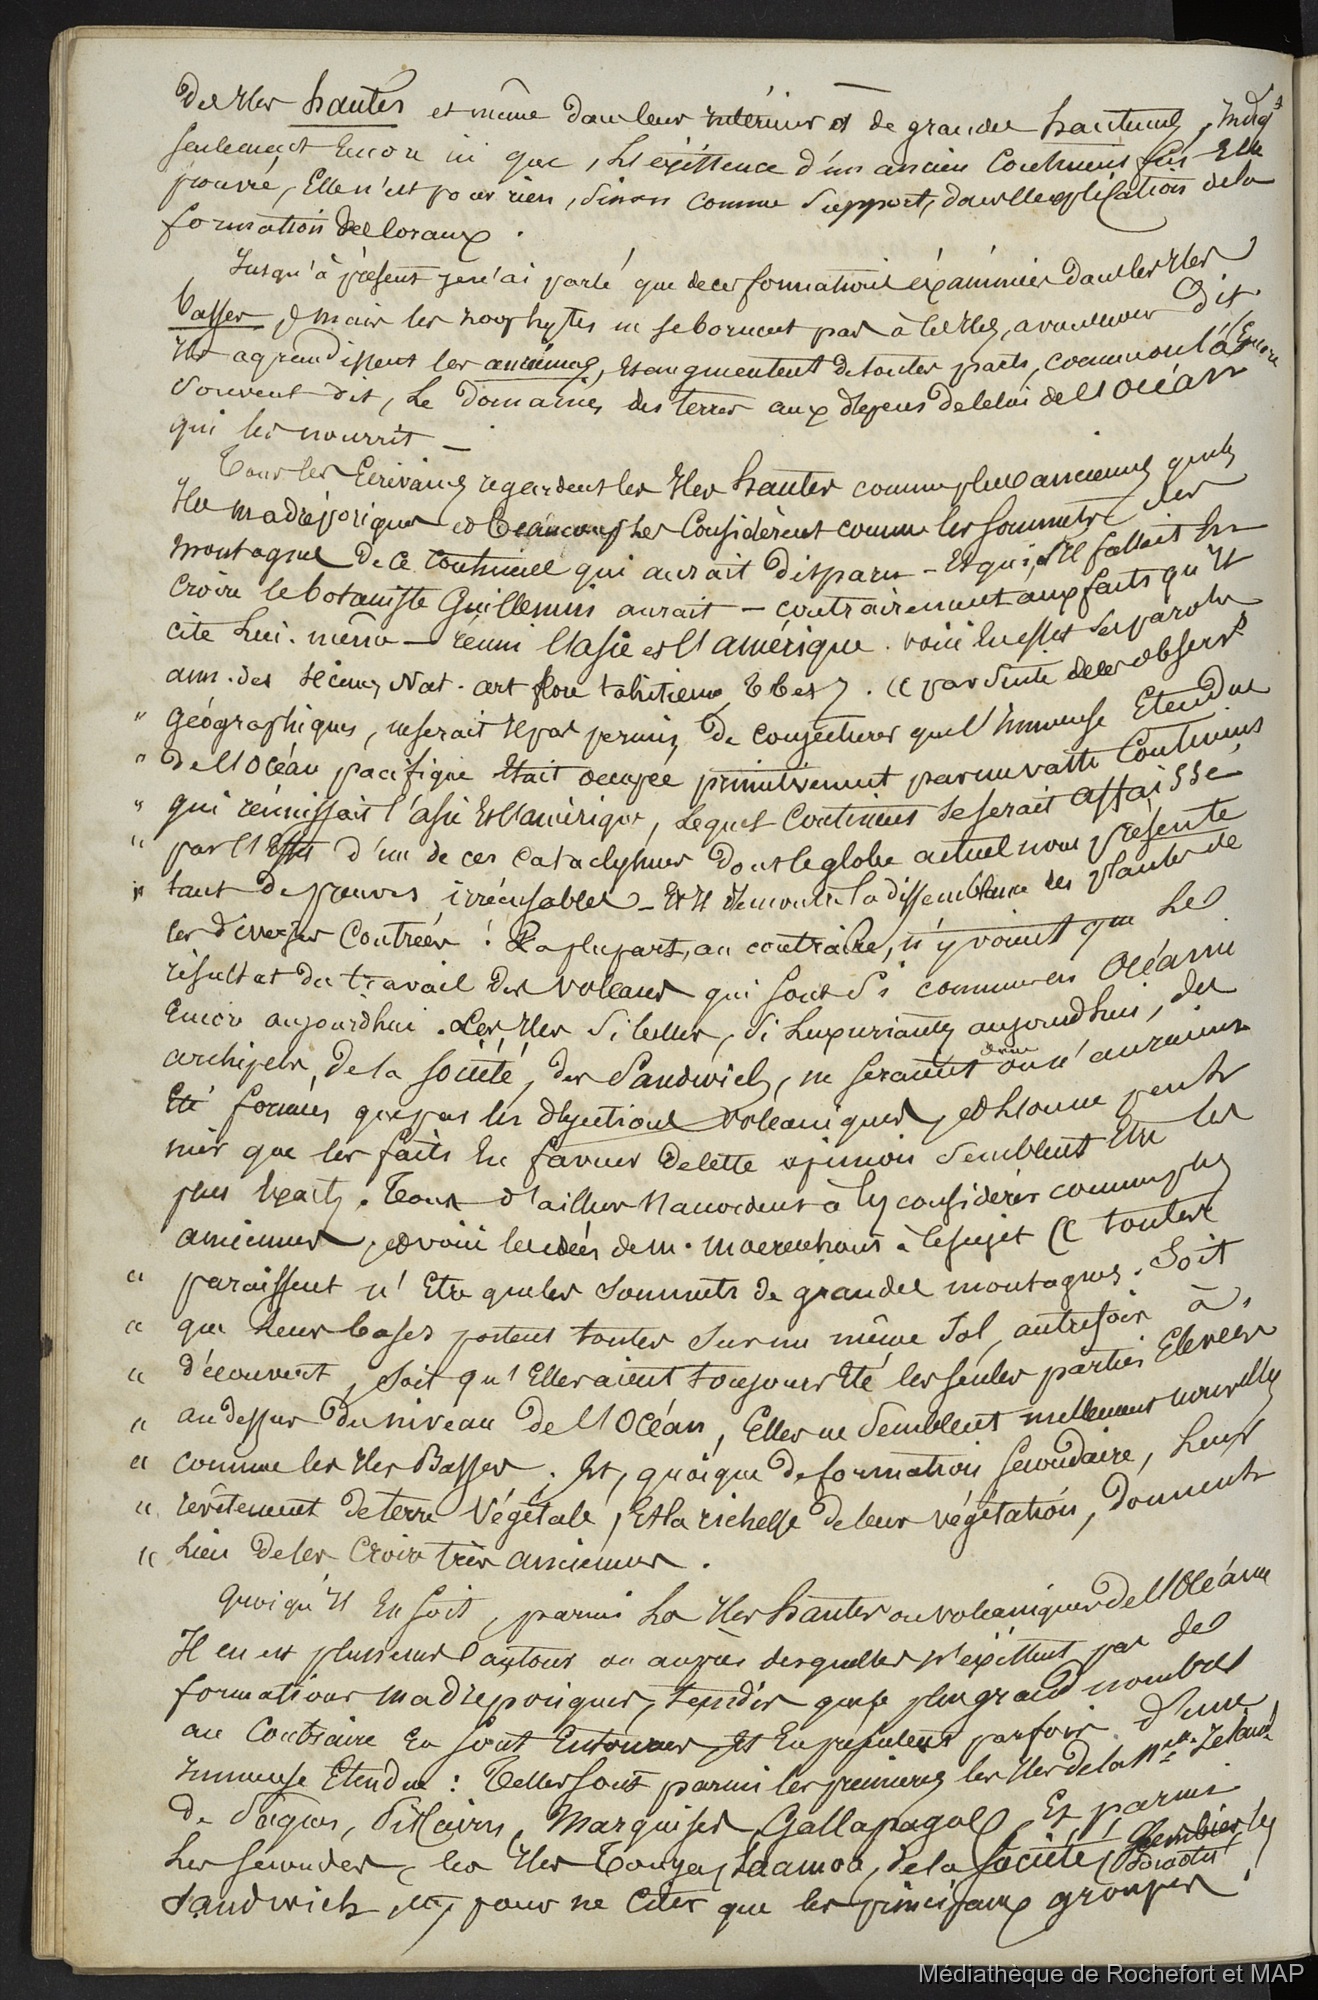 des iles hautes et même dans leur intérieur et de grandes hauteurs, indiqt
seulement encore ici que, l'existence d'un ancien continent fut-elle
prouvé, elle n'est pour rien, sinon comme support, dans l'explication de la
formation des coraux.
Jusqu'à présent je n'ai parlé que de ces formations éxaminées dans les iles
basses, mais les zoophytes ne se bornent pas à ces iles, avons nous dit
ils agrandissent les anciennes, et augmentent de toutes parts, comme on l'a encore
souvent dit, le domaine des terres aux depens de celui de l'océan
qui les nourrit —
Tous les écrivains regardent les iles hautes comme plus anciennes que les
iles madréporiques et beaucoup les considèrent comme les sommets des
montagnes de ce continent qui aurait disparu — et qui, s'il fallait en
croire le botaniste Guillemin aurait — contrairement aux faits qu'il
cite lui-même — réuni l'asie et l'amérique. voici en effet ses paroles
ann. des scienc. Nat. art flore tahitienne, . « par suite de ces observs
" géographiques, ne serait il pas permis de conjecturer que l'immense etendue
" de l'océan pacifique était occupée primitivement par un vaste continent
" qui réunissait l'asie et l'amérique, lequel continent se serait affaissé
" par l'effet d'un de ces cataclysmes dont le globe actuel nous présente
" tant de preuves irrécusables — et il demontre la dissemblance des plantes de
ces diverses contrées! La plupart, au contraire, n'y voient que le
résultat du travail des volcans qui sont si communs en océanie
encore aujourd'hui. Les iles si belles, si luxuriantes aujourd'hui, des
archipels, de la société, des Sandwich, ne seraient donc ou n'auraient
été formées que par les déjections volcaniques, et l'on ne peut
nier que les faits en faveur de cette opinion semblent être les
plus exacts. Tous d'ailleurs s'accordent à les considérer comme plus
anciennes, et voici les idées de m. Moerenhout à ce sujet « toutes
" paraissent n'etre que les sommets de grandes montagnes. Soit
" que leurs bases posent toutes sur un même sol, autrefois à
" découvert, soit qu'elles aient toujours été les seules parties elevées
" au dessus du niveau de l'océan, elles ne semblent nullement nouvelles
" comme les iles Basses. Et, quoique de formation secondaire, leur
" revêtement de terre végétale, et la richesse de leur végétation, donnent
" lieu de les croire très anciennes.
Quoiqu'il en soit, parmi les iles hautes ou volcaniques de l'océanie
Il en est plusieurs autour ou auprès desquelles n'éxistent pas de
formations madréporiques, tandis que le plus grand nombre
au contraire en sont entourées et en présentent parfois d'une
immense étendue: Telles sont parmi les premieres les iles de la Nelle Zélande
de Pâques, Pitcairn, Marquises, Gallapagos, Et, parmi
les secondes, les iles Tonga, Samoa, de la société, Gambier, les
Sandwich, etc, pour ne citer que les principaux groupes

Médiathèque de Rochefort et MAP